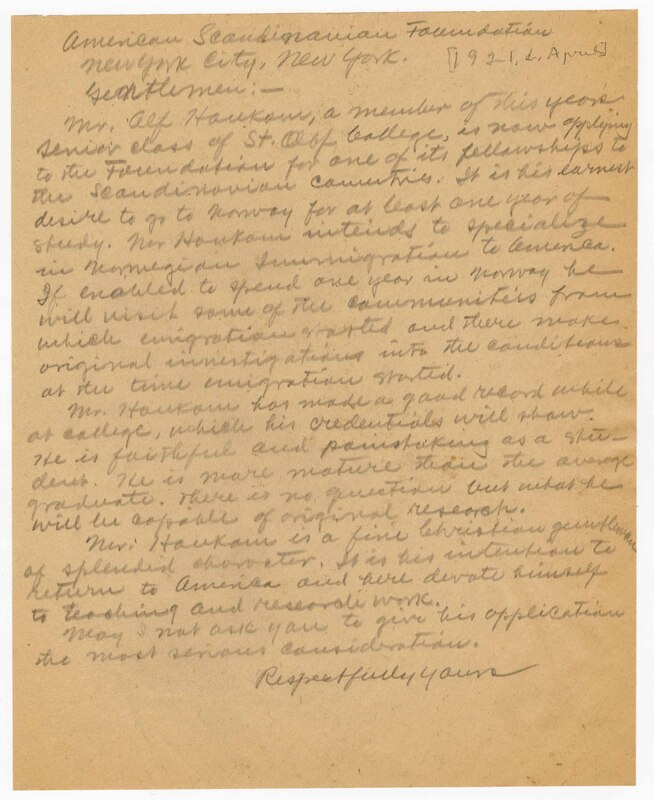 American Scandinavian Foundation
New York City, New York. [1921, 2. April]
Gentlemen:—
Mr. Alf Haukom, a member of this years
senior class of St. Olaf College, is now applying
to the Foundation for one of its fellowships to
the Scandinavian countries. It is his earnest
desire to go to Norway for at least one year of
study. Mr Haukom intends to specialize
in Norwegian Immigration to America.
If enabled to spend one year in Norway he
will visit some of the communities from
which emigration started and there make
original investigations into the conditions
at the time emigration started.
Mr. Haukom has made a good record while
at college, which his credentials will show.
He is faithful and painstaking as a stu-
dent. He is more mature than the average
graduate. There is no question but what he
will be capable of original research.
Mr. Haukom is a fine Christian gentleman
of splendid character. It is his intention to
return to America and here devote himself
to teaching and research work.
May I not ask you to give his application
the most serious consideration.
Respectfully Yours